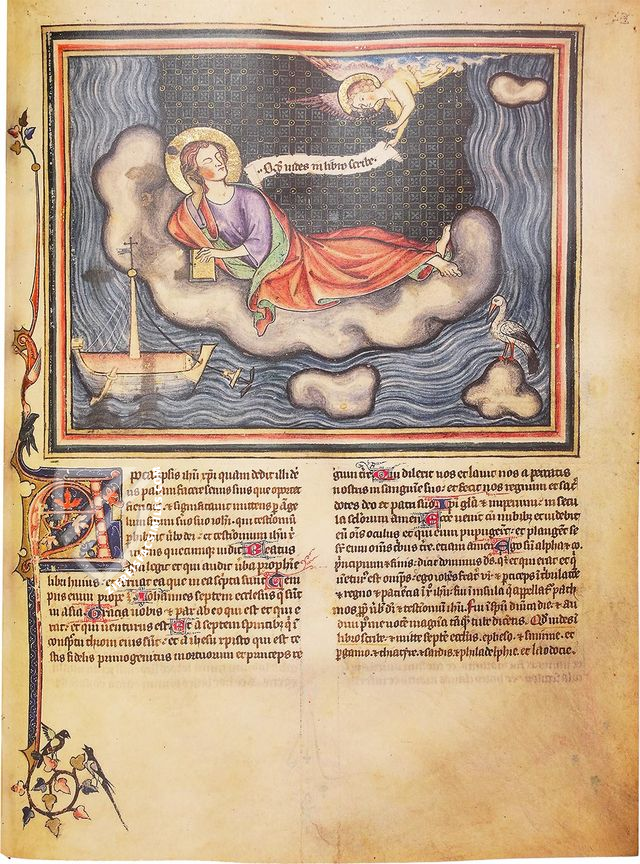 Qd uides in libro scribe
Apocalipsis ihu xpi quam dedit illi de
us palam facere seruis suis que oportet
fieri cito et significauit mittens p angelum
suum seruo suo iohi qui testimoniu
phibuit uerbo dei et testimoniu ihu xpi
in hiis quecumqe uidit Beatus
qui legit et qui audit uba prophetie
libri huius et seruat ea que in ea scpta sunt Tem
pus enim prope Iohannes septem ecclesiis q sunt
in asia Gracia uobis et pax ab eo qui est et qui e
rat et qui uenturus est Et a septem spiritibz q i
conspctu throni eius sut et a ihesu xpisto qui est te
stis fidelis primogenitus mortuorum et princeps re
gum tre Qui dilexit nos et lauit nos a peccatis
nostris in sanguine suo et fecit nos regnum et sacer
dotes deo et patri suo Ipi gla et imperium in secu
la seclorum amen Ecce uenit cu nubibz et uidebit
eu ois oculus et qui eum pupugerut et plangent se
sup eum ois tribus tre etiam amen Ego sum alpha et o
pncipium et finis dicit dominus ds qi est et qui erat et q
uenturus est omps ego iohes frat ur et pticeps in tbulatoe
et regno et pacientia i xpo ihu fui in insula q appellat path
mos pp ubu di et testimoniu ihu fui i spu in dnica die et au
diui p me uoce magna taq tube dicentis Qd uides i
libro scribe et mitte septe eccliis epheso et smirne et
pgamo et thiatire et sardis et philadelphie et laodicie